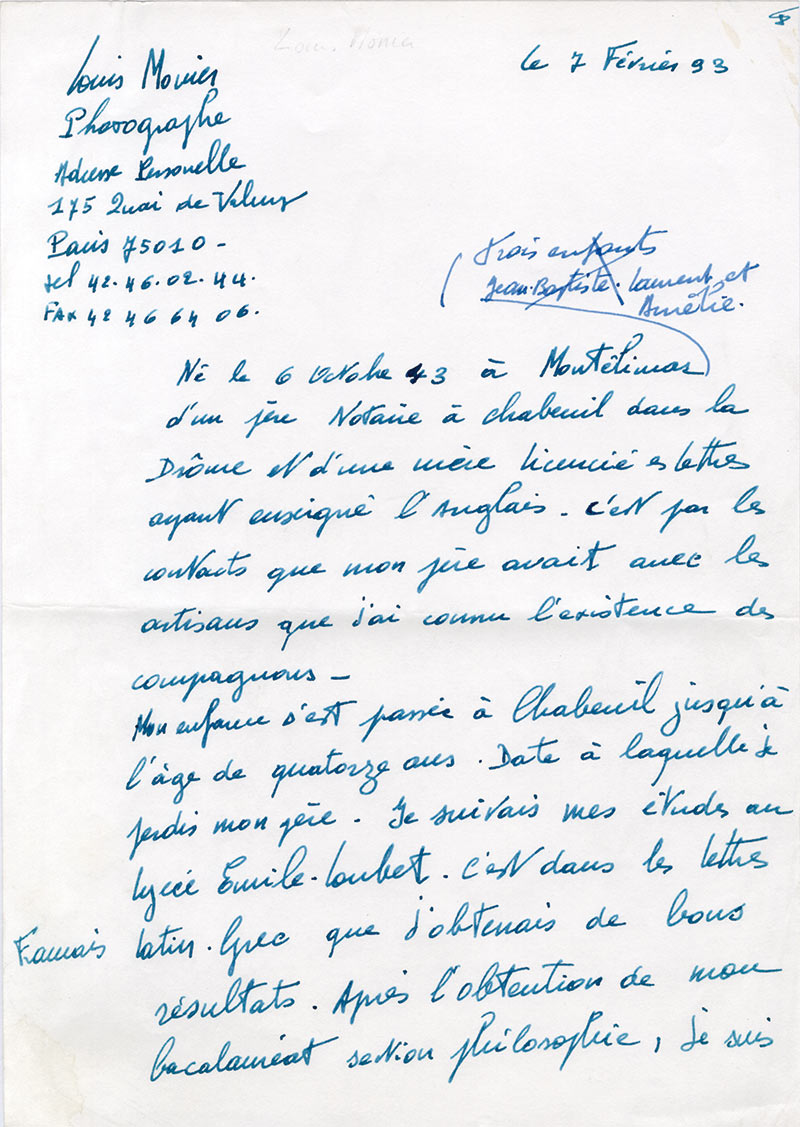 le 7 Février 93
Louis Monier
Photographe
Adresse Personnelle
175 Quai de Valmy
Paris 75010 -
tel 42.46.02.44.
FAX 42 46 64 06.
Trois enfants
Jean-Baptiste. Laurent et
Amélie.
Né le 6 octobre 43 à Montélimar
d'un père Notaire à chabeuil dans la
Drôme et d'une mère licencié es lettres
ayant enseigné l'Anglais. c'est par les
contacts que mon père avait avec les
artisans que j'ai connu l'existence des
compagnons -
Mon enfance s'est passée à Chabeuil jusqu'à
l'âge de quatorze ans. Date à laquelle je
perdis mon père. Je suivais mes études au
lycée Emile-Loubet. c'est dans les lettres
Francais latin. Grec que j'obtenais de bons
résultats. Après l'obtention de mon
bacalauréat section philosophie, je suis